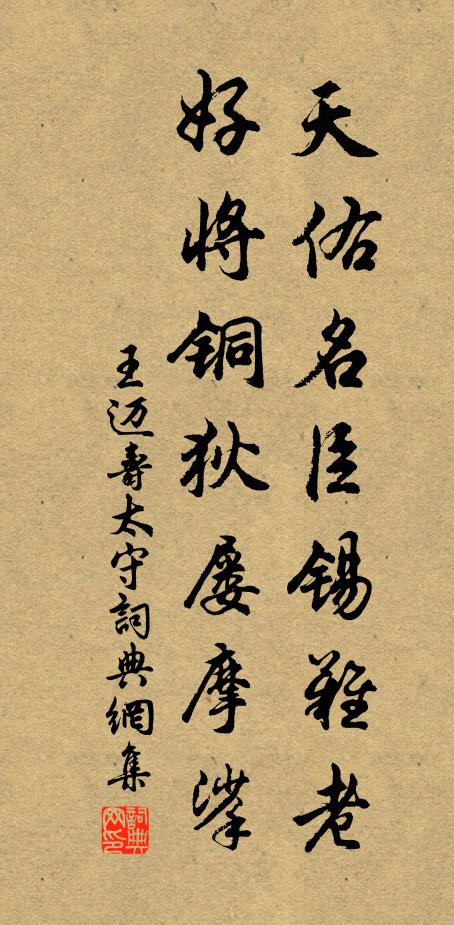 天佑名臣锡难老
好将铜狄屡摩挲
王迈寿太守詞典網集
詞典网印